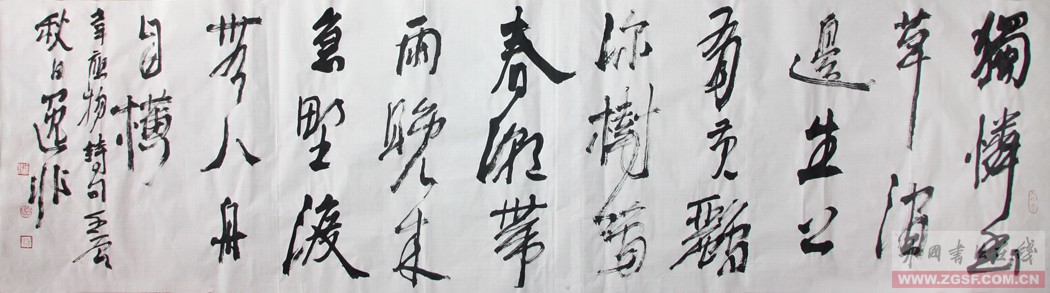 獨憐幽
草澗
邊生上
有黃鸝
深樹鳴
春潮帶
雨晚来
急野渡
無人舟
自橫
韋應物詩句
秋日
中国书法在线
WWW.ZGSF.COM.CN